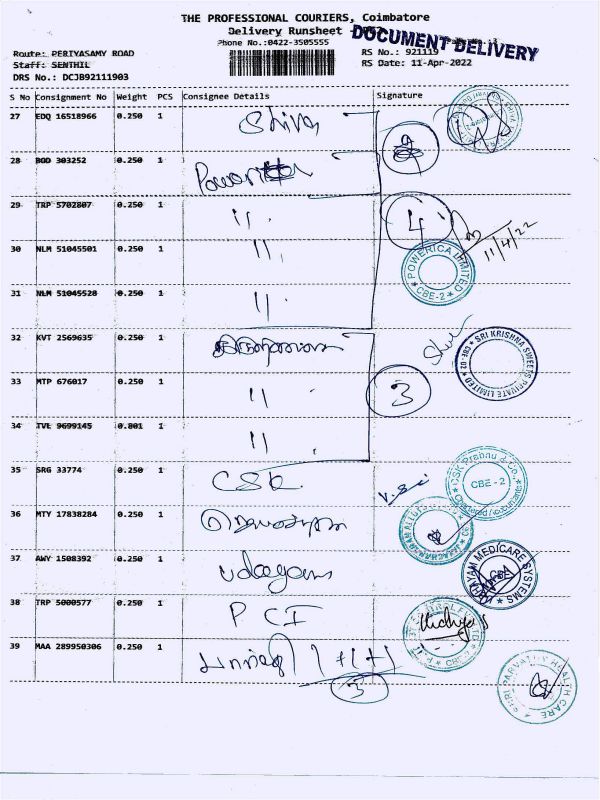 THE PROFESSIONAL COURIERS, Coimbatore
Delivery Runsheet
Phone No.:0422-3505555
DOCUMENT DELIVERY
Route: PERIYASAMY ROAD
RS No.: 921119
Staff: SENTHIL
RS Date: 11-Apr-2022
DRS No.: DCJB92111903
S No Consignment No Weight PCS Consignee Details Signature
27 EDQ 16518966 0.250 1 Shiva
28 BOD 303252 0.250 1
29 TRP 5702807 0.250 1 11.
4
30 NLM 51045501 0.250 1 11.
11/4/22
POWERICA LIMITED
CBE-2
31 NLM 51045528 0.250 1 11.
32 KVT 2569635 0.250 1
SRI KRISHNA SWEETS PRIVATE LIMITED CBE-02
33 MTP 676017 0.250 1 11.
3
34 TVL 9699145 0.801 1 11.
35 SRG 33774 0.250 1 CSK
CSK Prabhu & Co.,
CBE - 2
Chartered Accountants
36 MTY 17838284 0.250 1
37 AWY 1508392 0.250 1 udayam
UDHAYAM MEDICARE SYSTEMS
CBE
38 TRP 5000577 0.250 1 PCI
39 MAA 289950306 0.250 1 1+1+1
3
SHRI PARVATHY HEALTH CARE